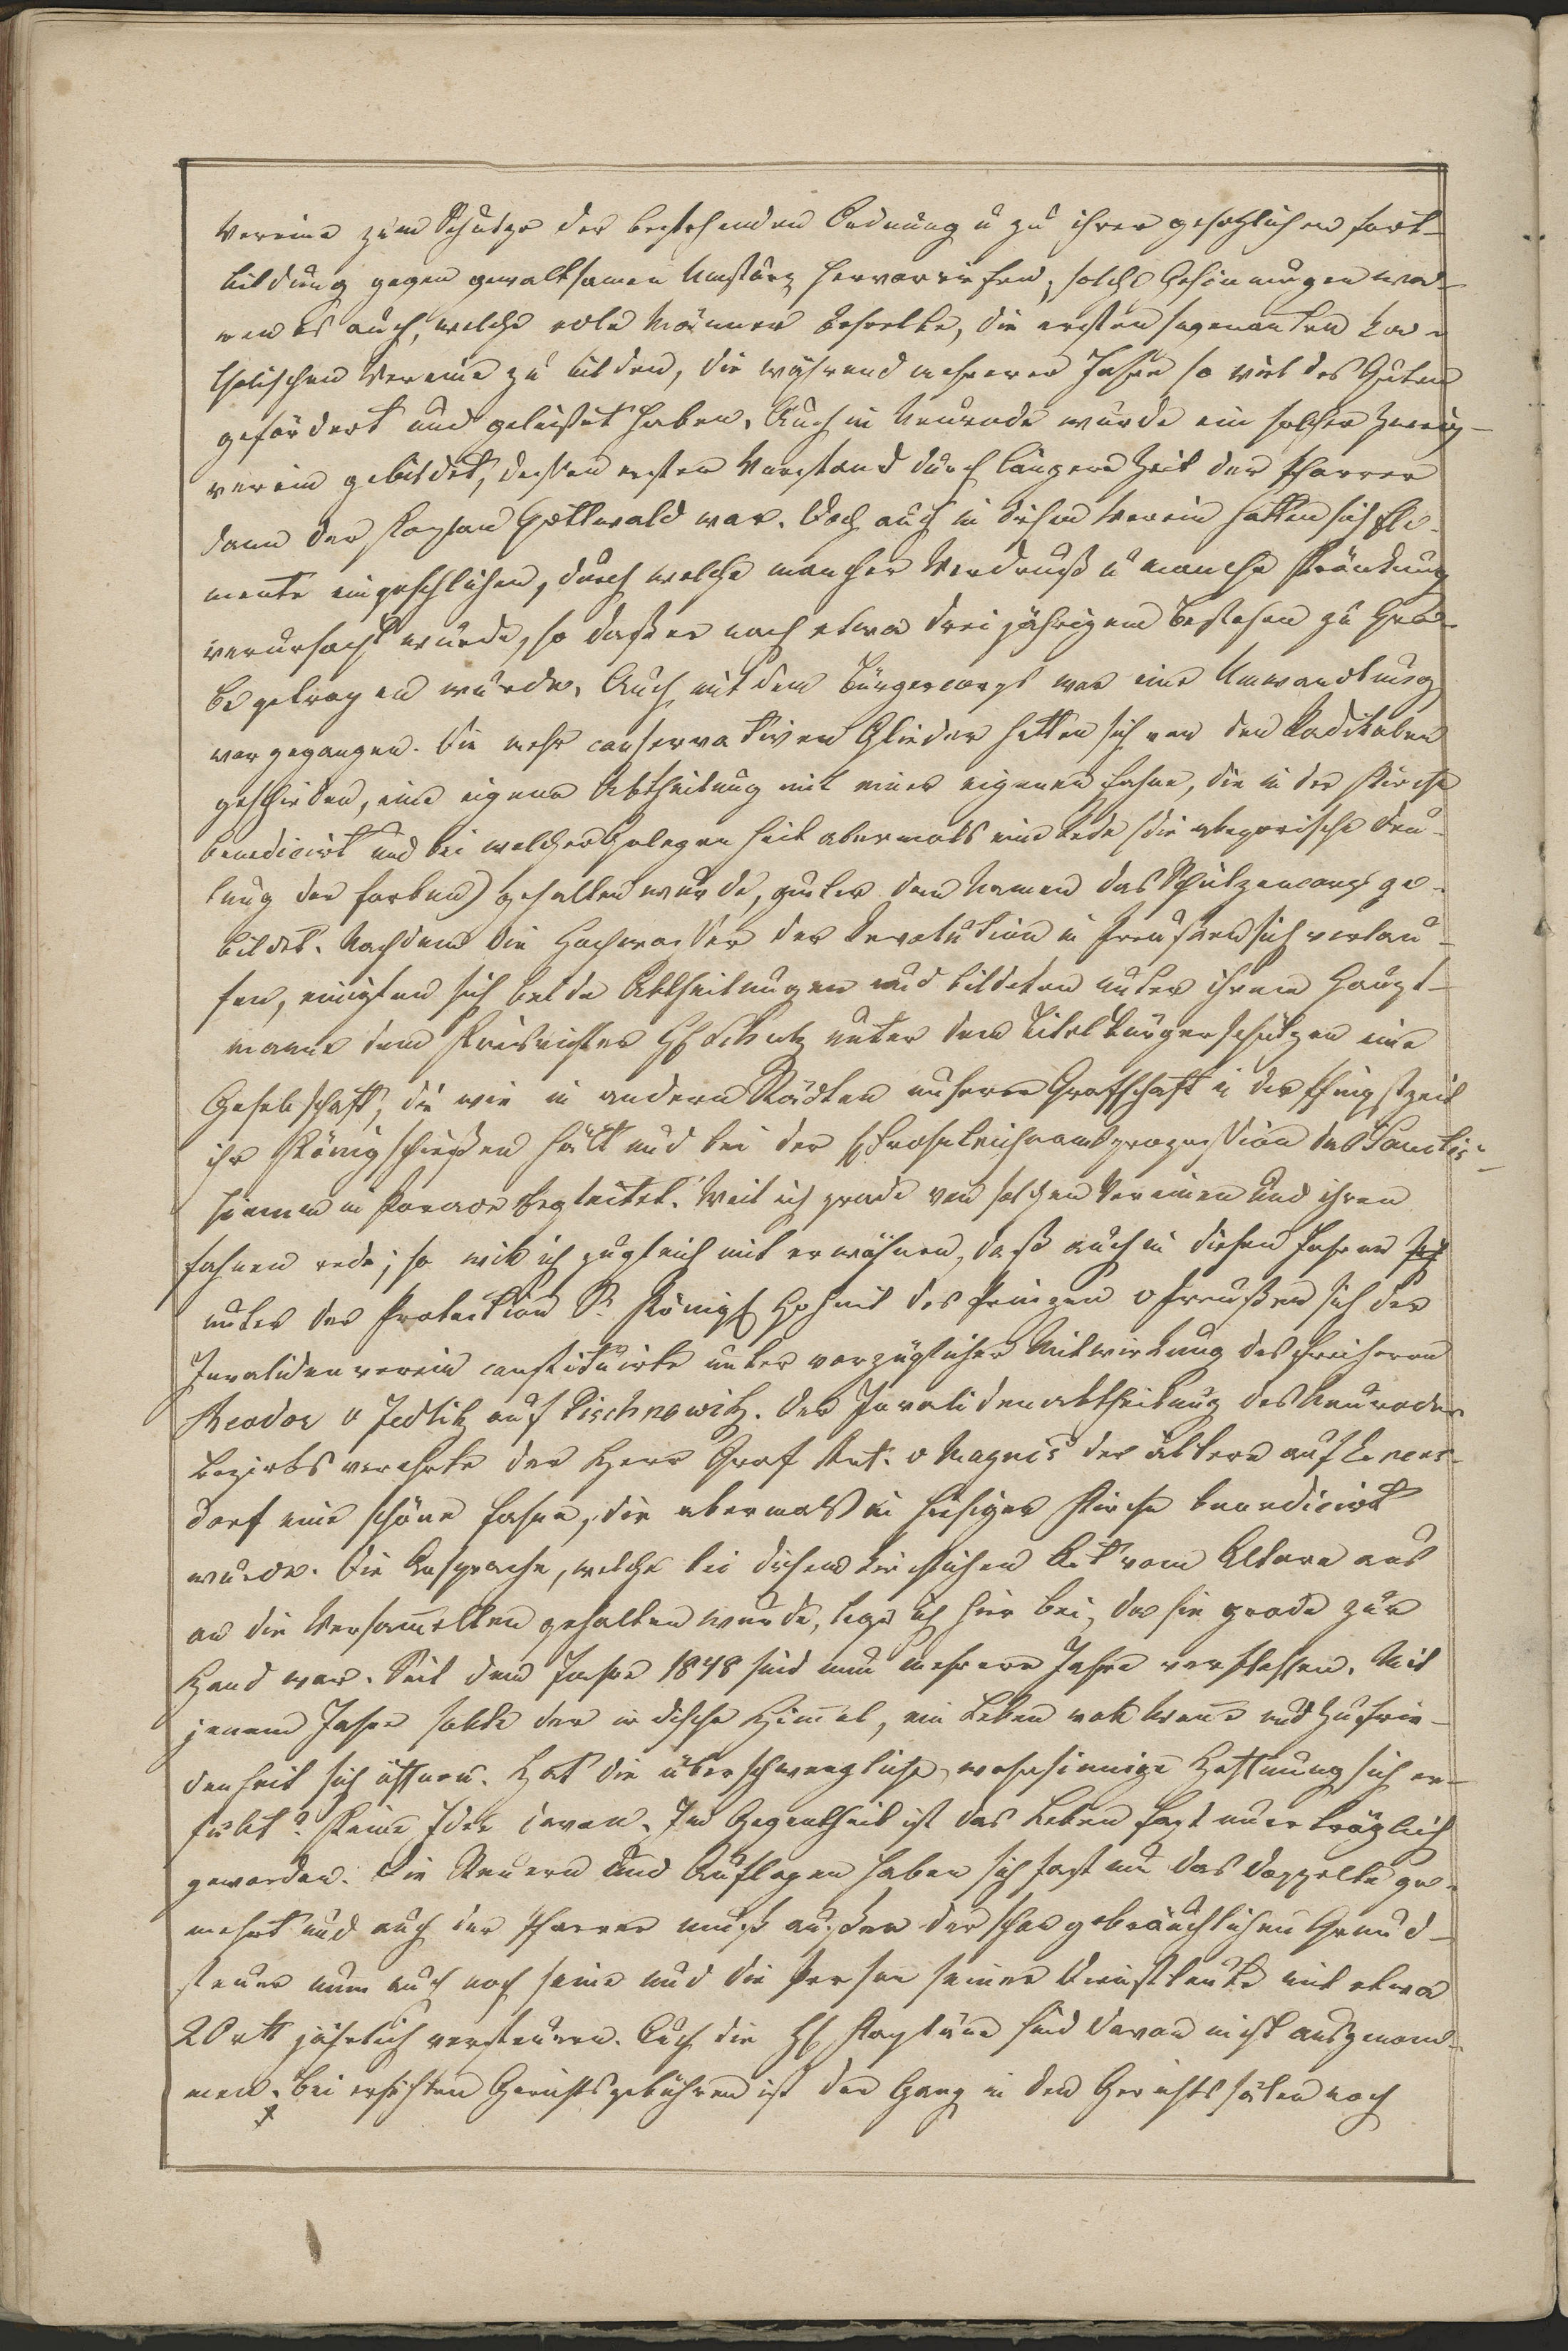 Vereine zum Schutze der bestehenden Ordnung u zu ihrer gesetzlichen Fort-
bildung gegen gewaltsamen Umsturz hervorriefen, solche Gesinnungen wa-
ren es auch, welche edle Männer beseelte, die ersten sogenanten Ka-
tholischen Vereine zu bilden, die während mehrerer Jahre so viel des Guten
gefördert und geleistet haben. Auch in Neurode wurde ein solcher Zweig-
verein gebildet, dessen ersten Vorstand durch längere Zeit der Pfarrer
dann der Kaplan Gottwald war. Doch auch in diesen Verein hatten sich Ele-
mente eingeschlichen, durch welche mancher Verdruß u manche Kränkung
verursacht wurde, so daß er nach etwa dreijährigem Bestehen zu Gra-
be getragen wurde. Auch mit dem Bürgercorps war eine Umwandlung
vorgegangen. Die mehr conservativen Glieder hatten sich von den Radikalen
geschieden, eine eigene Abtheilung mit einer eigenen Fahne, die in der Kirche
benedicirt und bei welcher Gelegenheit abermals eine Rede (die allegorische Deu-
tung der Farben) gehalten wurde, unter dem Namen das Schützencorps ge-
bildet. Nachdem die Hochwasser der Revolution in Preußen sich verlau-
fen, einigten sich beide Abtheilungen und bildeten unter ihrem Haupt-
manne dem Kreisrichter H Schutz unter dem Titel Bürgerschützen eine
Gesellschaft, die wie in andern Städten unserer Grafschaft in der Pfingstzeit
ihr Königschießen hält und bei der Frohnleichnamsprozession das Sanctis-
simum in Parade begleitet. Weil ich grade von solchen Vereinen und ihren
Fahnen rede, so will ich zugleich mit erwähnen, daß auch in diesen Jahren
unter der Protection Sr. Königl Hoheit des Prinzen v Preußen sich der
Invalidenverein constituirte unter vorzüglicher Mitwirkung des Freiherrn
Theodor v Zedlitz auf Pischkowitz. Der Invalidenabtheilung des Neuroder
Bezirks verehrte der Herr Graf Ant. v Magnis der ältere auf Eckers-
dorf eine schöne Fahne, die abermals in hiesiger Kirche benedicirt
wurde. Die Ansprache, welche bei diesem kirchlichen Akt vom Altare aus
an die Versam̅elten gehalten wurde, lege ich hier bei, da sie grade zur
Hand war. Seit dem Jahre 1848 sind nun mehrere Jahre verflossen. Mit
jenem Jahre sollte der irdische Him̅el, ein Leben voll Won̅e und Zufrie-
denheit sich öffnen. Hat die überschwengliche, wahnsinnige Hoffnung sich er-
füllt? Keine Idee davon. Im Gegentheil ist das Leben fast unerträglich
geworden. Die Steuern und Auflagen haben sich fast um das Doppelte ge-
mehrt und auch der Pfarrer muß außer der schon gebräuchlichen Grund-
steuer nun auch noch seine und die Person seiner Dienstleute mit etwa
20 rtl jährlich versteuern. Auch die H Kapläne sind davon nicht ausgenom-
men. Bei erhöhten Gerichtsgebühren ist der Gang in den Gerichtssälen noch